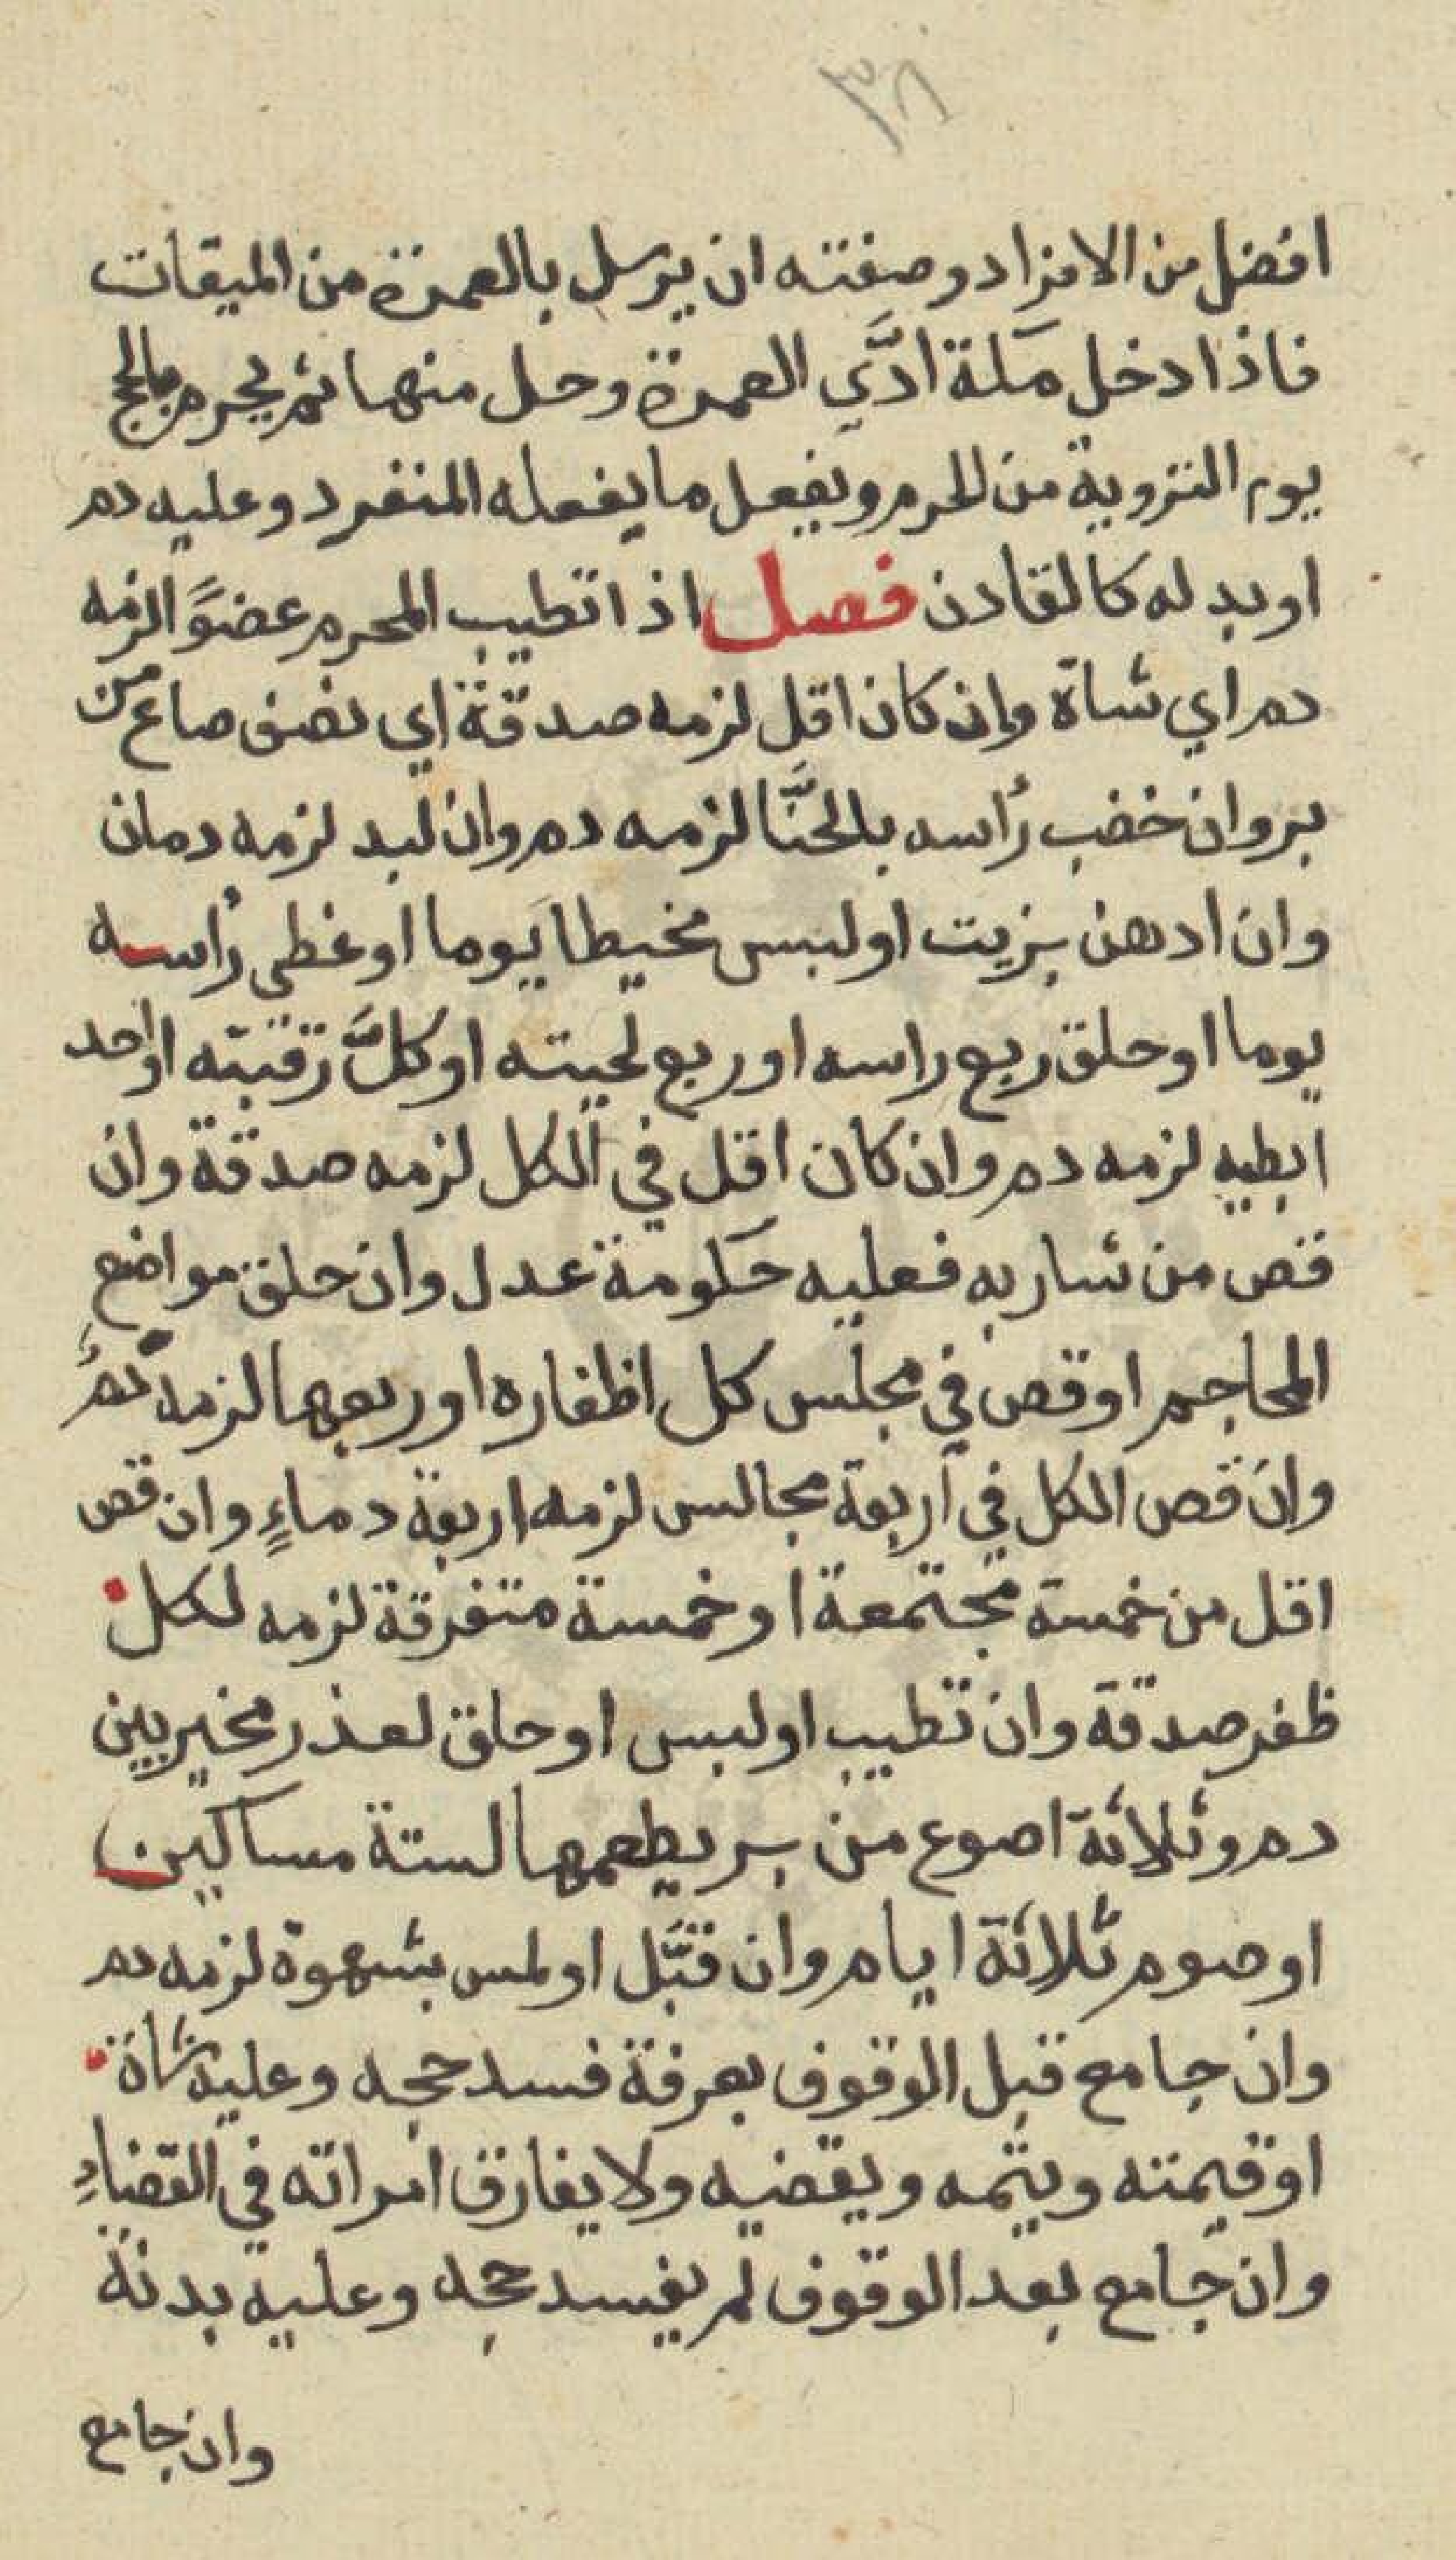 افضل من الافراد وصفته ان يرسل بالعمرة من الميقات
فاذا دخل مكة ادَّي العمرة وحل منها ثم يحرم بالحج
يوم التروية من الحرم ويفعل ما يفعله المنفرد وعليه دم
او بدله كالقادن فصل اذا تطيب المحرم عضوًا لزمه
دم اي شاة وان كان اقل لزمه صدقة اي نصف صاع من
بر وان خضب رأسه بالحنَّا لزمه دم وان لبد لزمه دمان
وان ادهن بزيت او لبس مخيطا يوما او غطى رأسه
يوما او حلق ربع راسه او ربع لحيته او كلَّ رقبته او احد
ابطيه لزمه دم وان كان اقل في الكل لزمه صدقة وان
قص من شاربه فعليه حكومة عدل وان حلق مواضع
المحاجم او قص في مجلس كل اظفاره او ربعها لزمه دمٌ
وان قص الكل في اربعة مجالس لزمه اربعة دماءٍ وان قص
اقل من خمسة مجتمعة او خمسة متفرقة لزمه لكل
ظفر صدقة وان تطيب او لبس او حلق لعذر مخير بين
دم وثلاثة اصوع من بر يطعمها لستة مساكين
او صوم ثلاثة ايام وان قبَّل او لمس بشهوة لزمه دم
وان جامع قبل الوقوف بعرفة فسد حجه وعليه شاة
او قيمته ويتمه ويقضيه ولا يفارق امراته في القضاءِ
وان جامع بعد الوقوف لم يفسد حجه وعليه بدنة
وان جامع